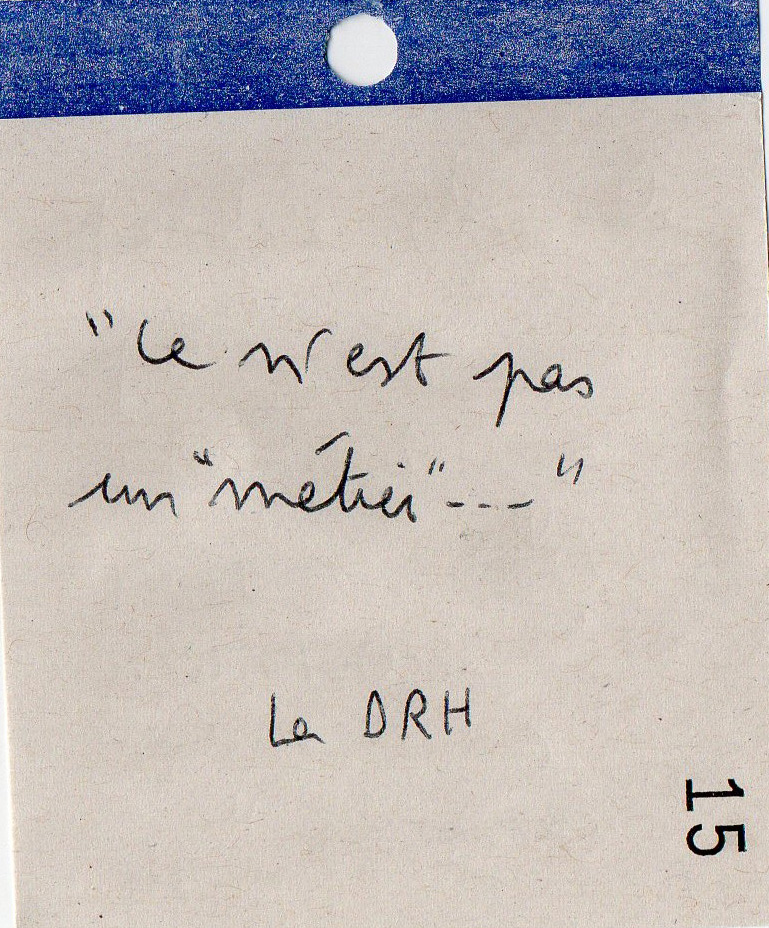 "Ce n'est pas
un "métier"---"
La DRH
15